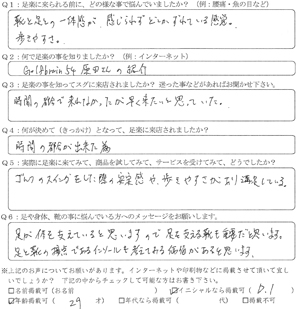 Q1：足楽に来られる前に、どの様な事で悩んでいましたか？（例：腰痛・魚の目など）
靴と足との一体感が感じられずどこかずれている感覚。
歩きやすさ。
Q2：何で足楽の事を知りましたか？（例：インターネット）
Golfbrain54 原田さんの紹介
Q3：足楽の事を知ってスグに来店されましたか？迷った事などがあればお聞かせ下さい。
時間の都合で来れなかったが早く来たいと思っていた。
Q4：何が決めて（きっかけ）となって、足楽に来店されましたか？
時間の都合が出来た為
Q5：実際に足楽に来てみて、商品を試してみて、サービスを受けてみて、どうでしたか？
ゴルフのスイングをした際の安定感や、歩きやすさがかなり満足している。
Q6：足や身体、靴の事に悩んでいる方へのメッセージをお願いします。
足が体を支えていると思いますので足を支える靴も重要だと思います。
足と靴の接点であるインソールを考えてみる価値があると思います。
※上記のお声についてお願いがあります。インターネットや印刷物などに掲載させて頂いて宜し
いでしょうか？　下記の中からチェックして可能な方はお書き下さい。
□名前掲載可（お名前　　　）　☑イニシャルなら掲載可（ D.I ）
☑年齢掲載可（ 29 才）　□年代なら掲載可（　代）　□掲載不可